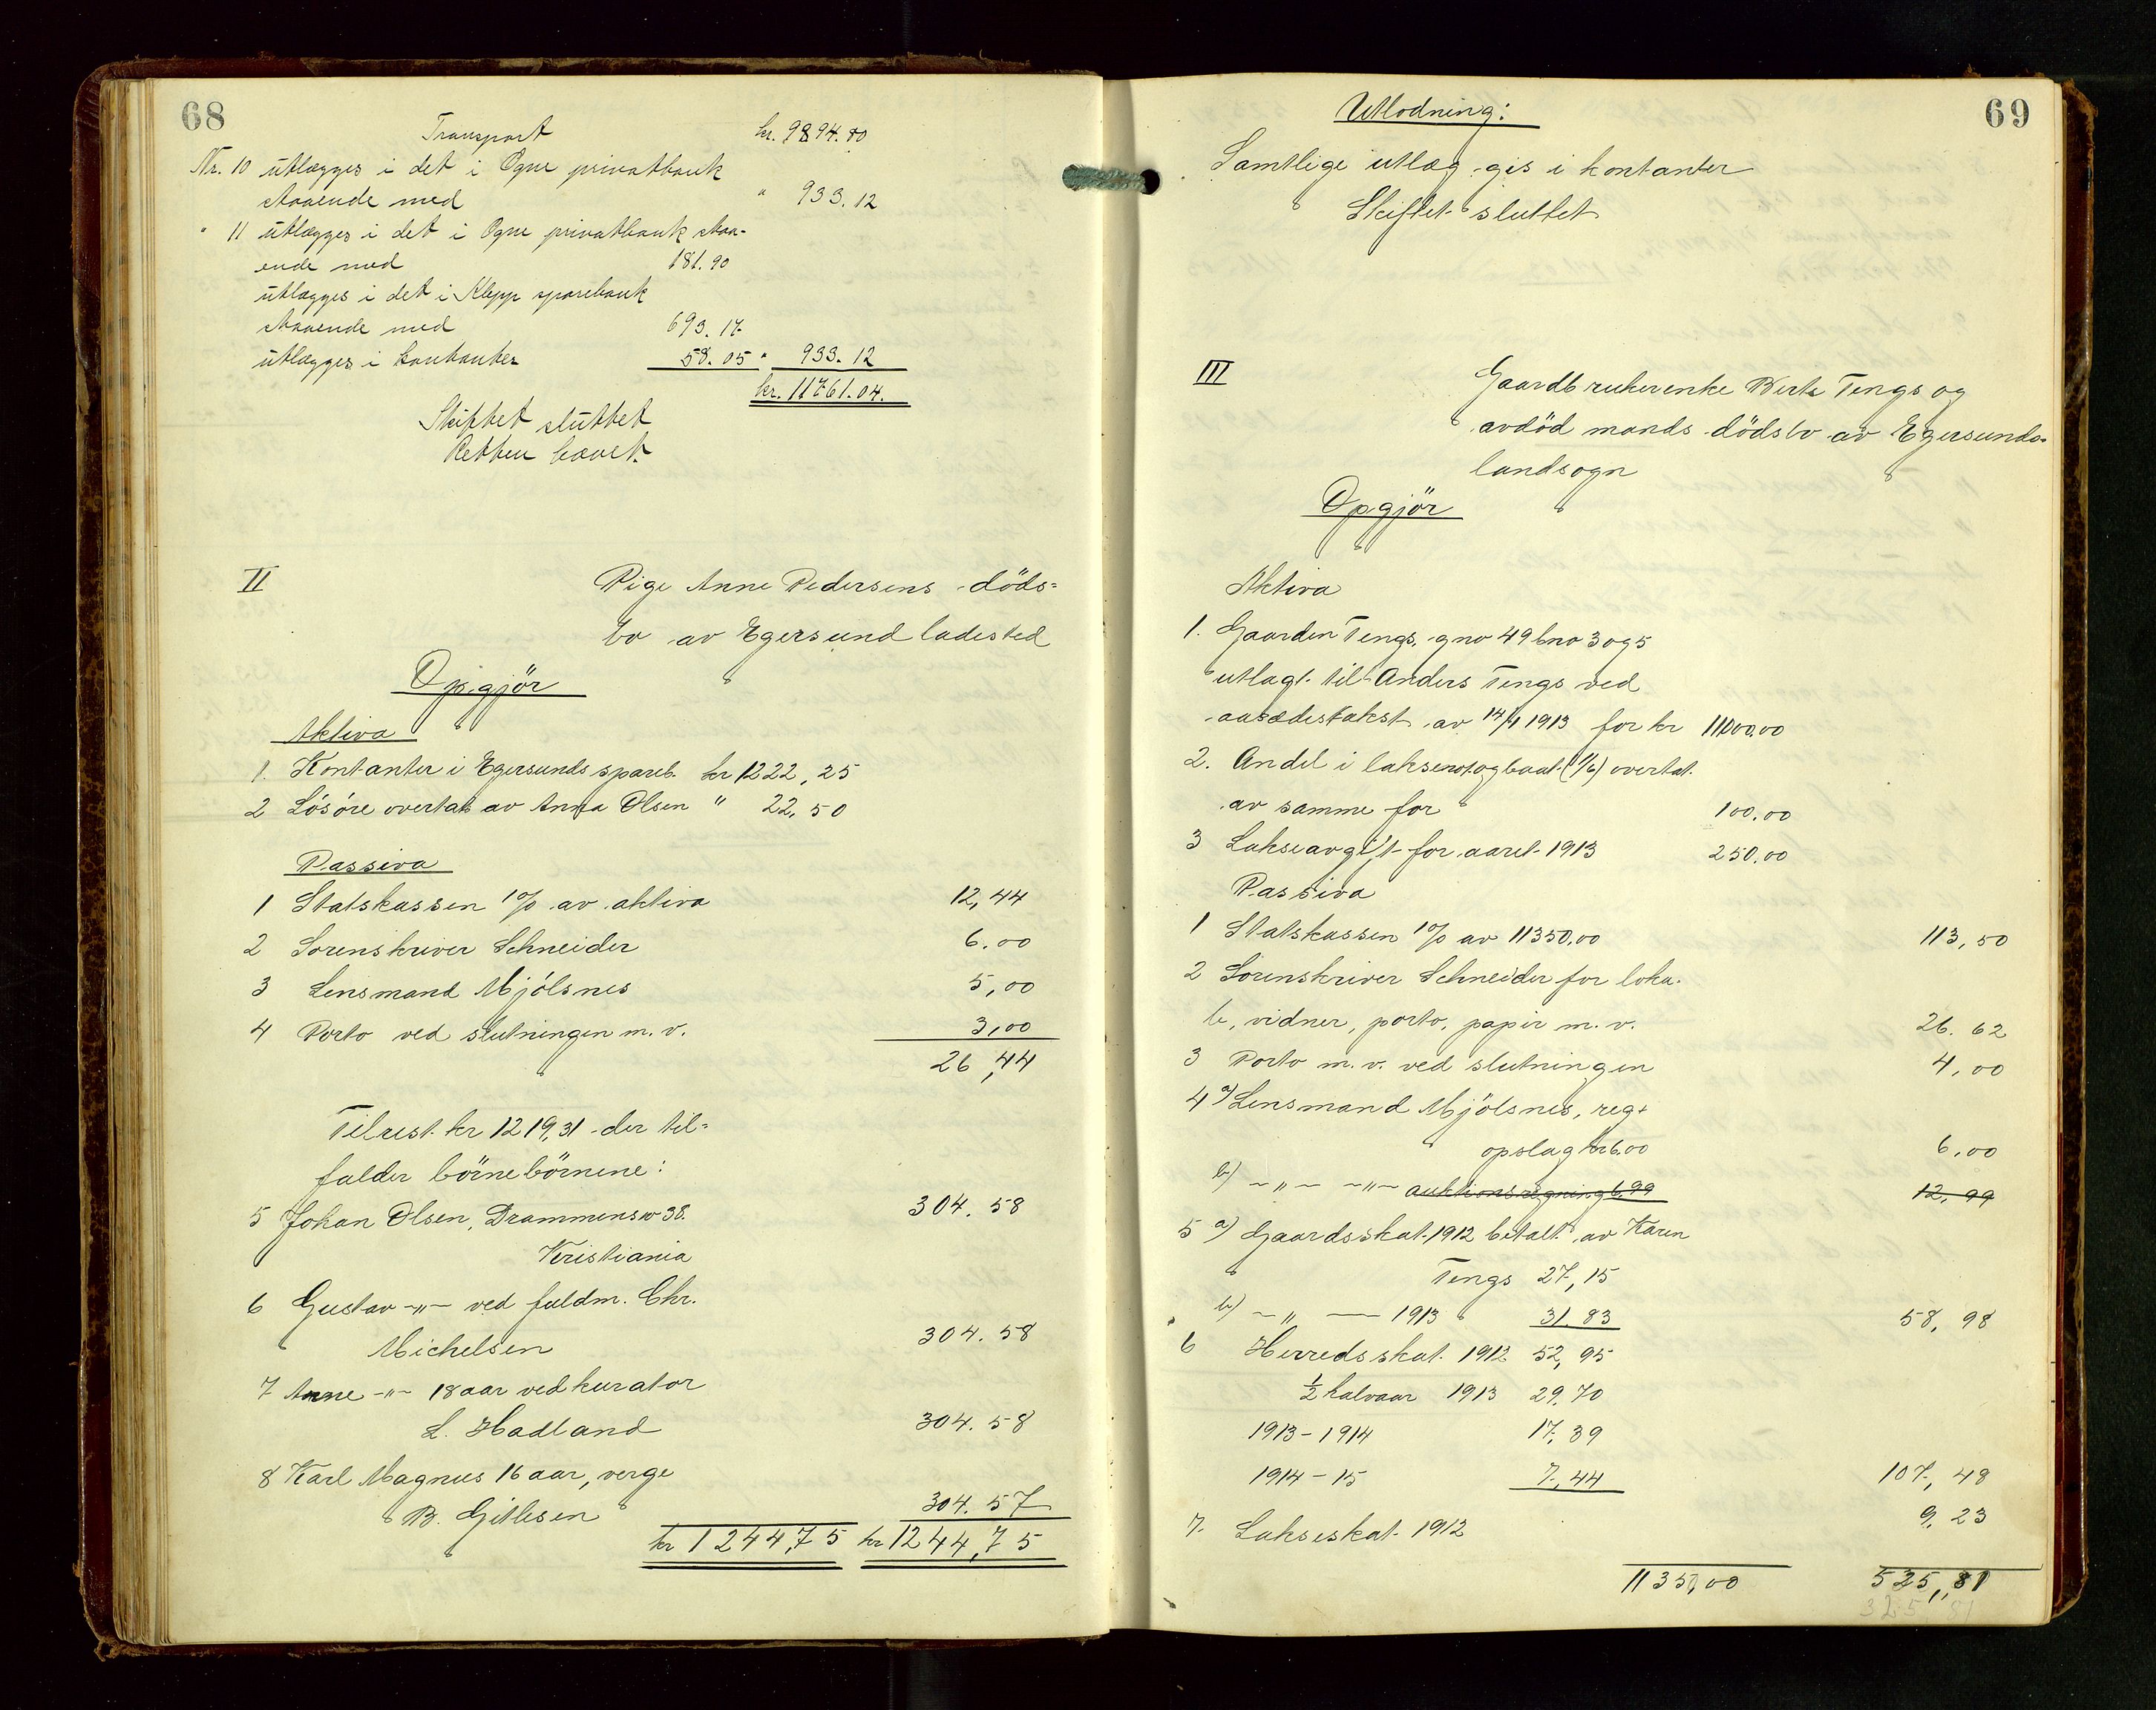 68
Transport kr. 9894.80
Nr. 10 utlægges i det i Ogne privatbank
staaende med " 933.12
" 11 utlægges i det i Ogne privatbank staa-
ende med 181.90
utlægges i det i Klepp sparebank
staaende med 693.17
utlægges i kontanter 58.05 " 933.12
kr. 11761.04.
Skiftet sluttet
Retten hævet.
II Pige Anne Pedersens döds=
bo av Egersund ladested
Opgjör
Aktiva
1. Kontanter i Egersunds spareb. kr 1222,25
2 Lösöre overtat av Anna Olsen " 22,50
Passiva
1 Statskassen 1% av aktiva 12,44
2 Sorenskriver Schneider 6.00
3 Lensmand Mjölsnes 5,00
4 Porto ved slutningen m. v. 3,00
26,44
Tilrest kr 1219,31 der til=
falder börnebörnene:
5 Johan Olsen, Drammensv 38. 304.58
Kristiania
6 Gustav -"- ved fuldm. Chr.
Michelsen 304.58
7 Anne -"- 18 aar ved kurator
L. Hadland 304.58
8 Karl Magnus 16 aar, verge
B. Gitlesen 304.57
kr 1244,75 kr 1244,75
69
Utlodning:
Samtlige utlæg gis i kontanter
Skiftet sluttet
III Gaardbrukerenke Berte Tengs og
avdöd mands dödsbo av Egersunds
landsogn
Opgjör
Aktiva
1. Gaarden Tengs, gno 49 bno 3 og 5
utlagt til Anders Tengs ved
aasædestakst av 14/4 1913 for kr 11000,00
2. Andel i laksenot og baat (1/6) overtat
av samme for 100,00
3 Lakseavgift for aaret 1913 250,00
Passiva
1 Statskassen 1% av 11350,00 113,50
2 Sorenskriver Schneider for loka-
le, vidner, porto, papir m. v. 26.62
3 Porto m. v. ved slutningen 4,00
4 a) Lensmand Mjölsnes, reg +
opslag kr 6.00 6,00
b) -"- -"- auktionsregning 6,99 12,99
5 a) Gaardsskat 1912 betalt av Karen
Tengs 27,15
b) -"- — 1913 31,83 58,98
6 Herredsskat 1912 52,95
1/2 halvaar 1913 29,70
1913-1914 17,39
1914-15 7,44 107,48
7. Lakseskat 1912 9,23
11350,00 525,81
325 81